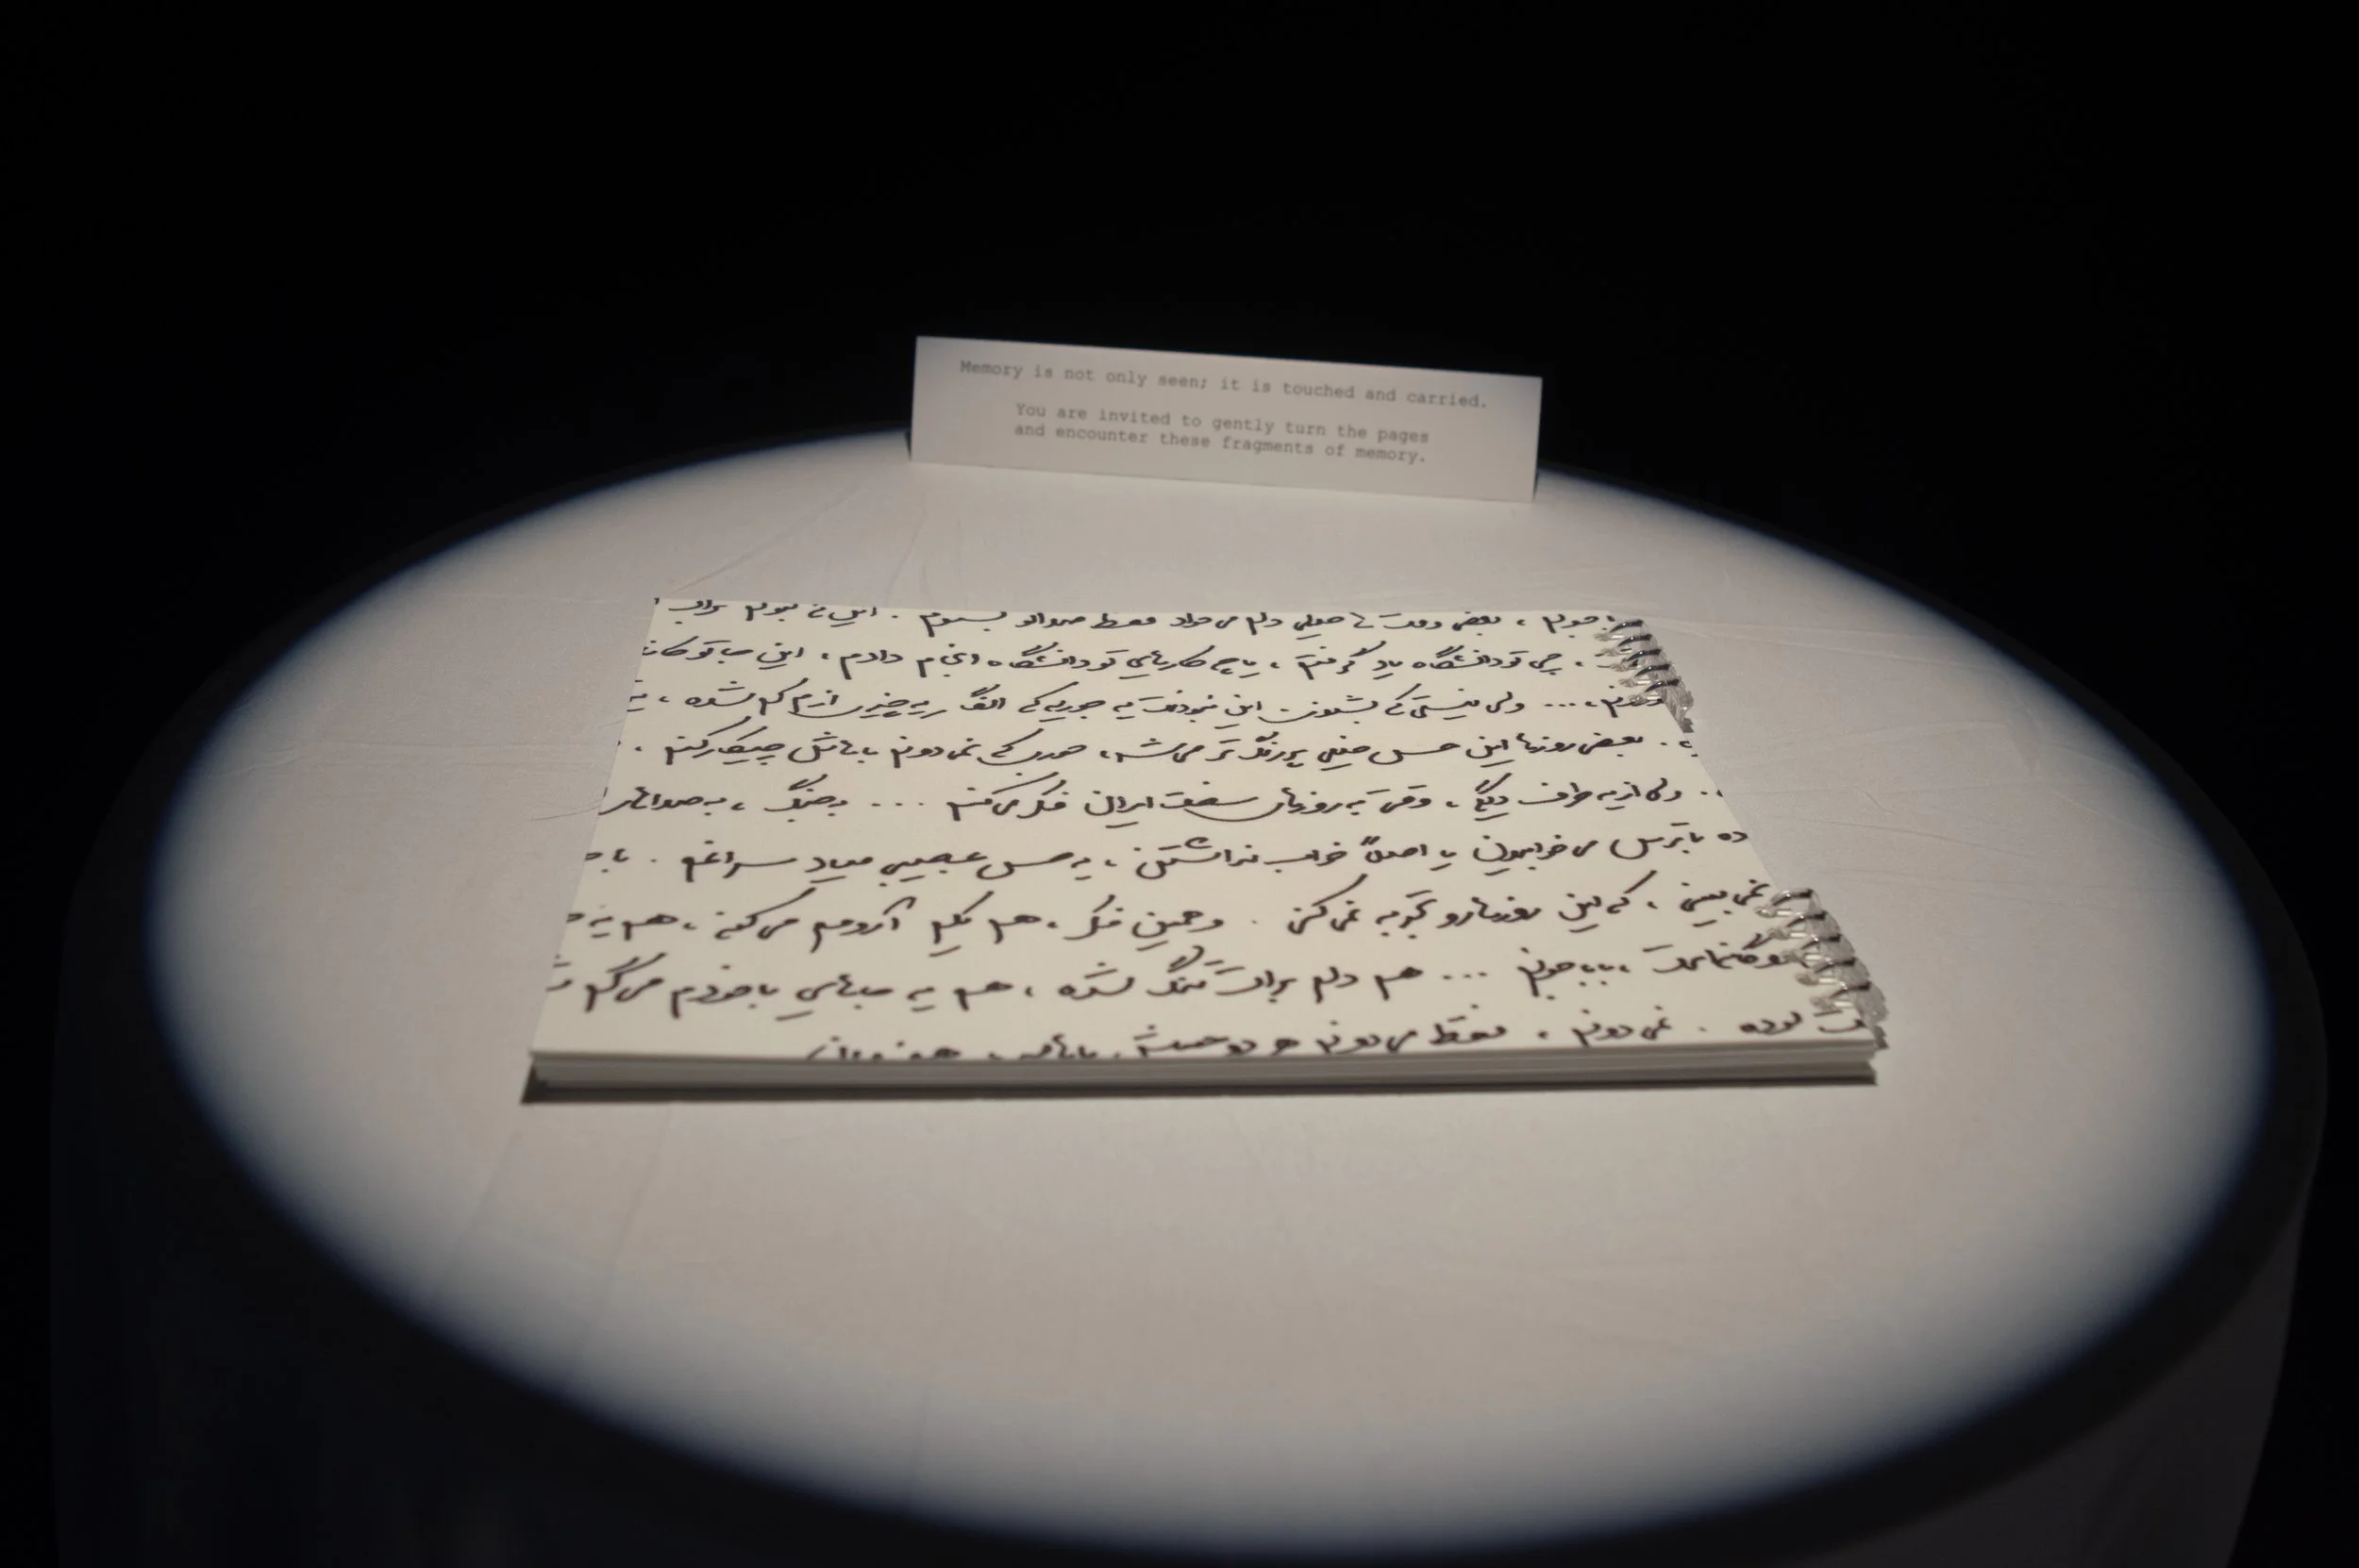 Memory is not only seen; it is touched and carried.
You are invited to gently turn the pages
and encounter these fragments of memory.
جونم ، بعضی وقت‌ها خیلی دلم می‌خواد فقط صداتو بشنوم . این‌که بتونم برات
، چی تو دانشگاه یاد گرفتم ، یا چه کارهایی تو دانشگاه انجام دادم ، این
... ولی نیستی که بشنوی. این نبودنت یه جوریه که انگار یه چیزی ازم کم شده ، یه
. بعضی روزها این حس خیلی پررنگ‌تر می‌شه ، جوری که نمی‌دونم باهاش چیکار کنم .
. ولی از یه طرف دیگه ، وقتی به روزهای سخت ایران فکر می‌کنم ... به جنگ ، به صداهای
ده با ترس می‌خوابیدن یا اصلاً خواب نداشتن ، یه حس عجیبی میاد سراغم .
نمی‌بینی ، که این روزها رو تجربه نمی‌کنی . و همین فکر ، هم یکم آرومم می‌کنه ، هم یه
، باباجونم ... هم دلم برات تنگ شده ، هم یه جاهایی با خودم می‌گم
بوده . نمی‌دونم ، فقط می‌دونم هر دو حسش باهامه ، همزمان